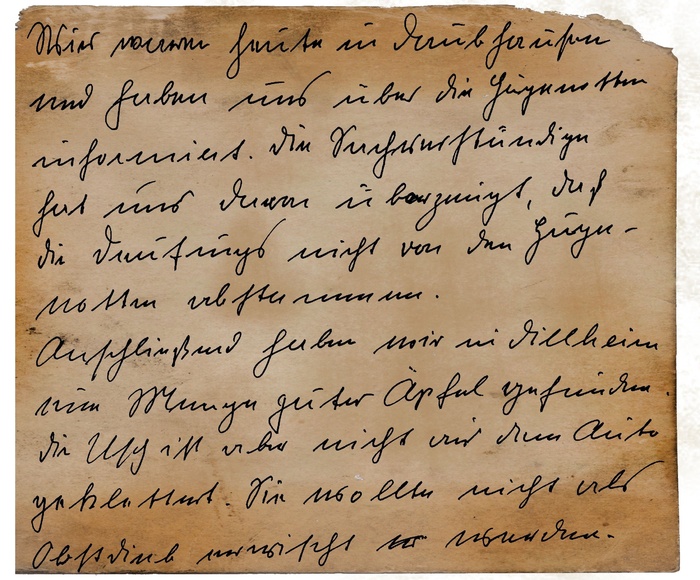 Wir waren heute in Daubhausen
und haben uns über die Hugenotten
informiert. Die Sachverständige
hat uns davon überzeugt, daß
die Deutungs nicht von den Huge-
notten abstammen.
Anschließend haben wir in Dillheim
eine Menge guter Äpfel gefunden.
die Usch ist aber nicht aus dem Auto
geklettert Sie wollte nicht als
Obstdieb erwischt werden.